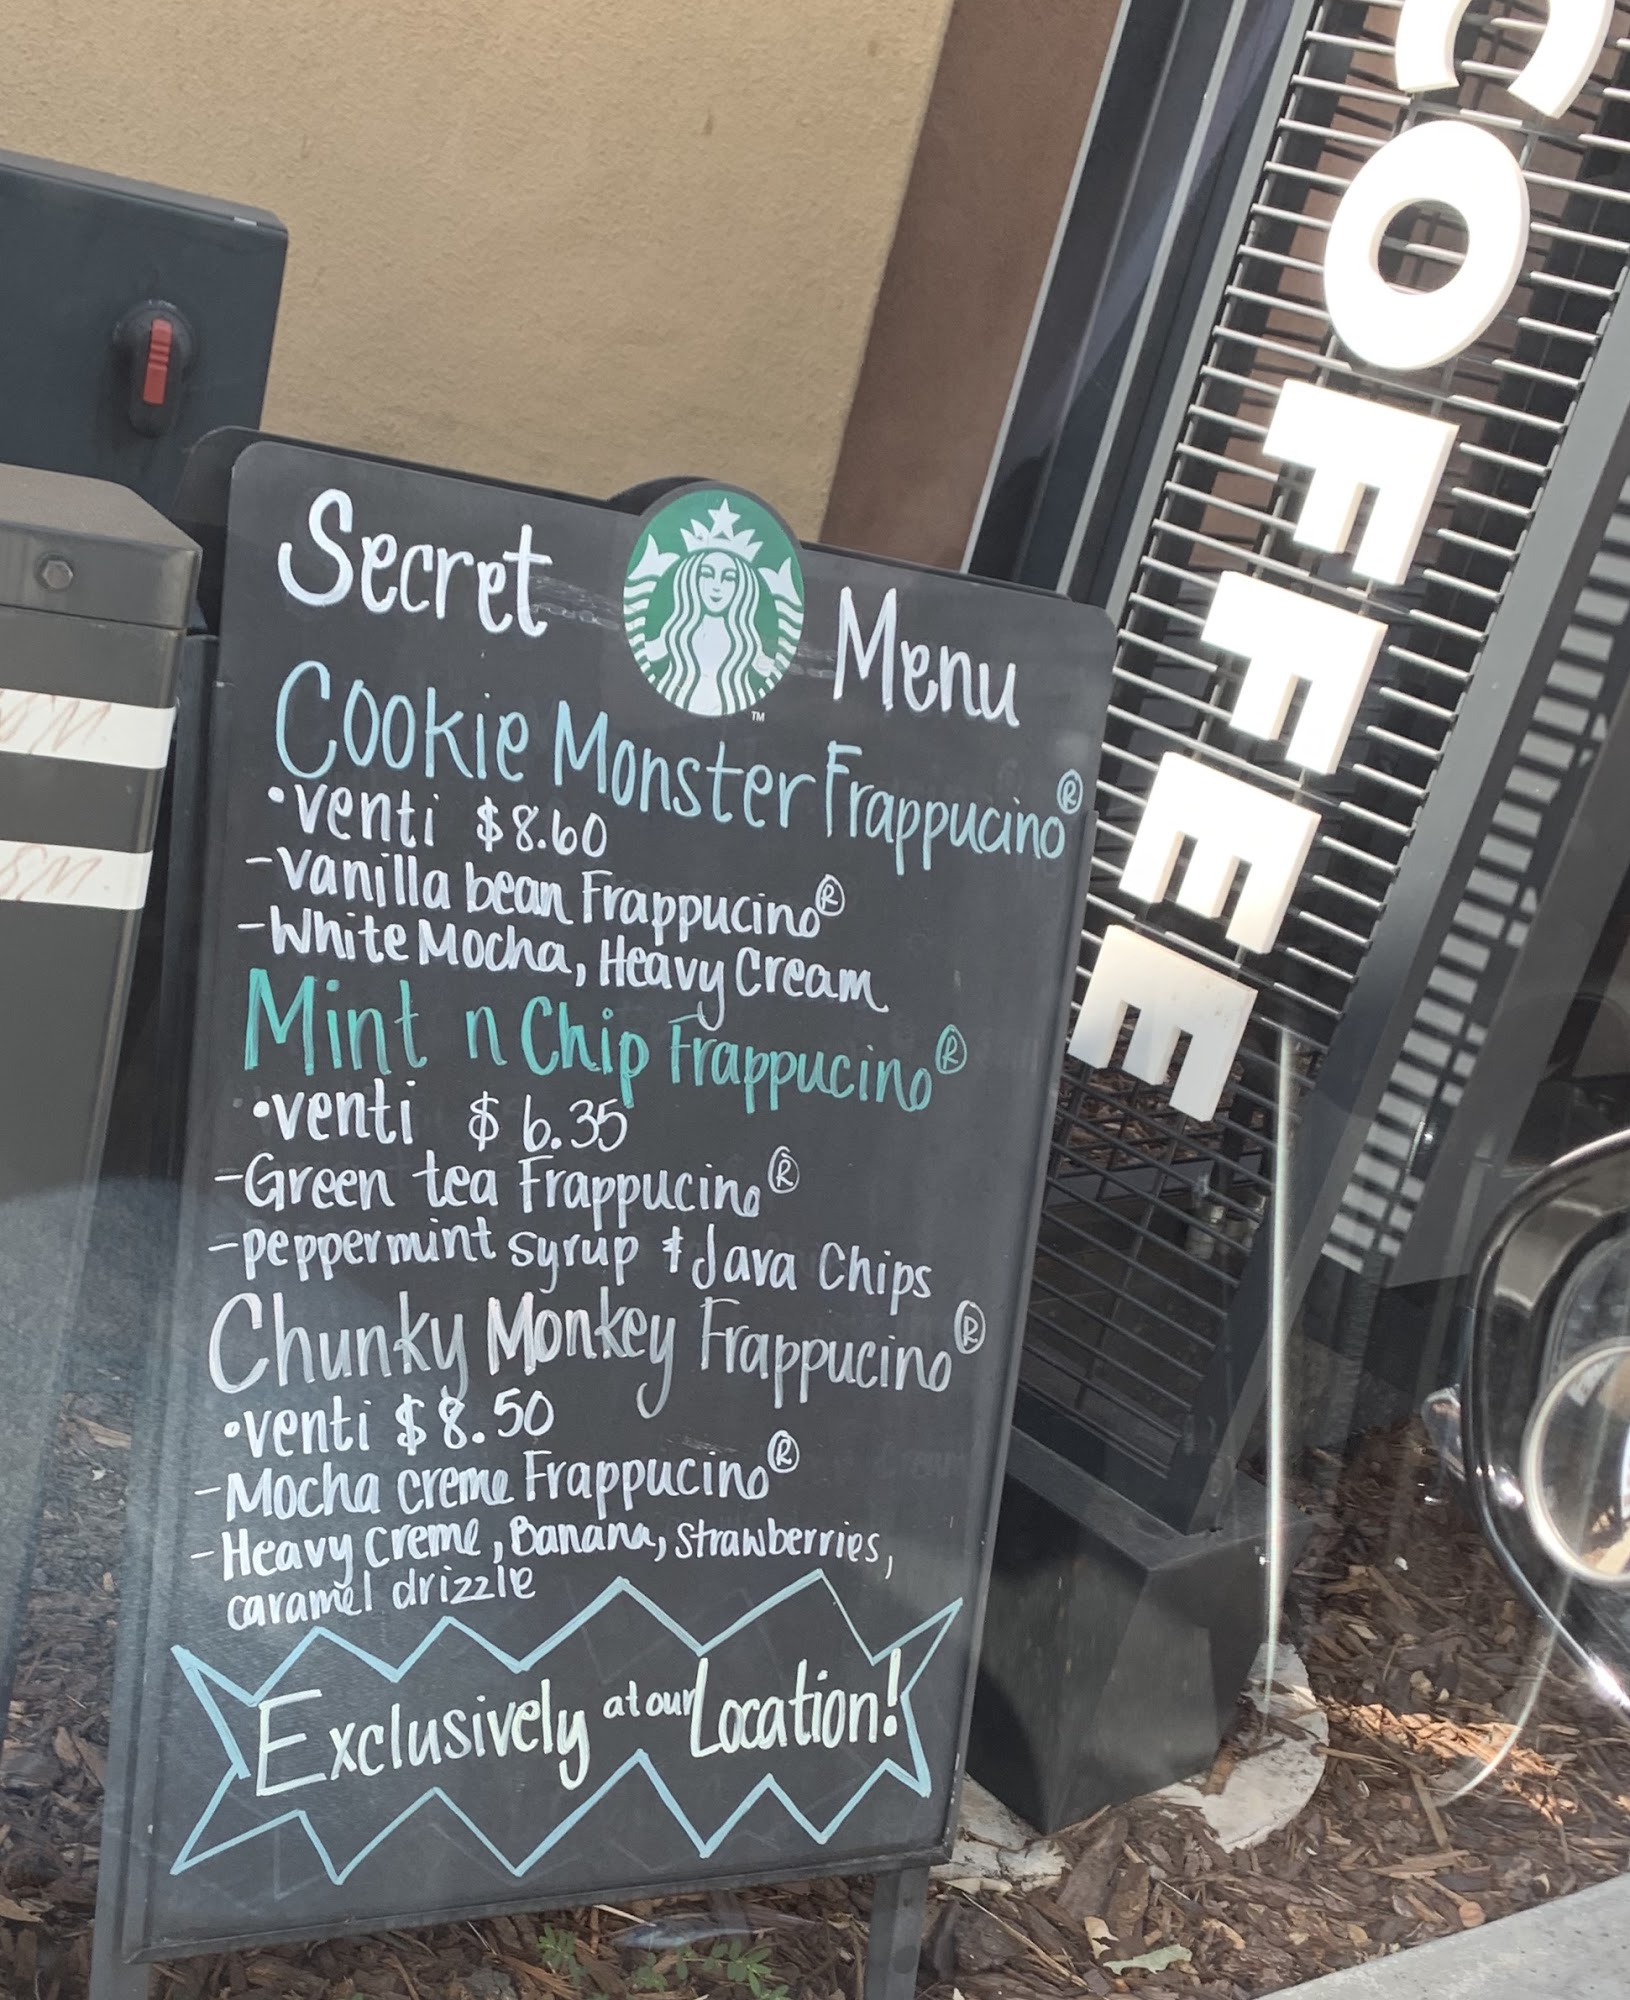 Secret Menu
TM
Cookie Monster Frappucino®
•venti $8.60
-vanilla bean Frappucino®
-White Mocha, Heavy Cream
Mint n Chip Frappucino®
•venti $6.35
-Green tea Frappucino®
-peppermint syrup & Java Chips
Chunky Monkey Frappucino®
•venti $8.50
-Mocha creme Frappucino®
-Heavy creme, Banana, strawberries,
caramel drizzle
Exclusively at our Location!
COFFEE